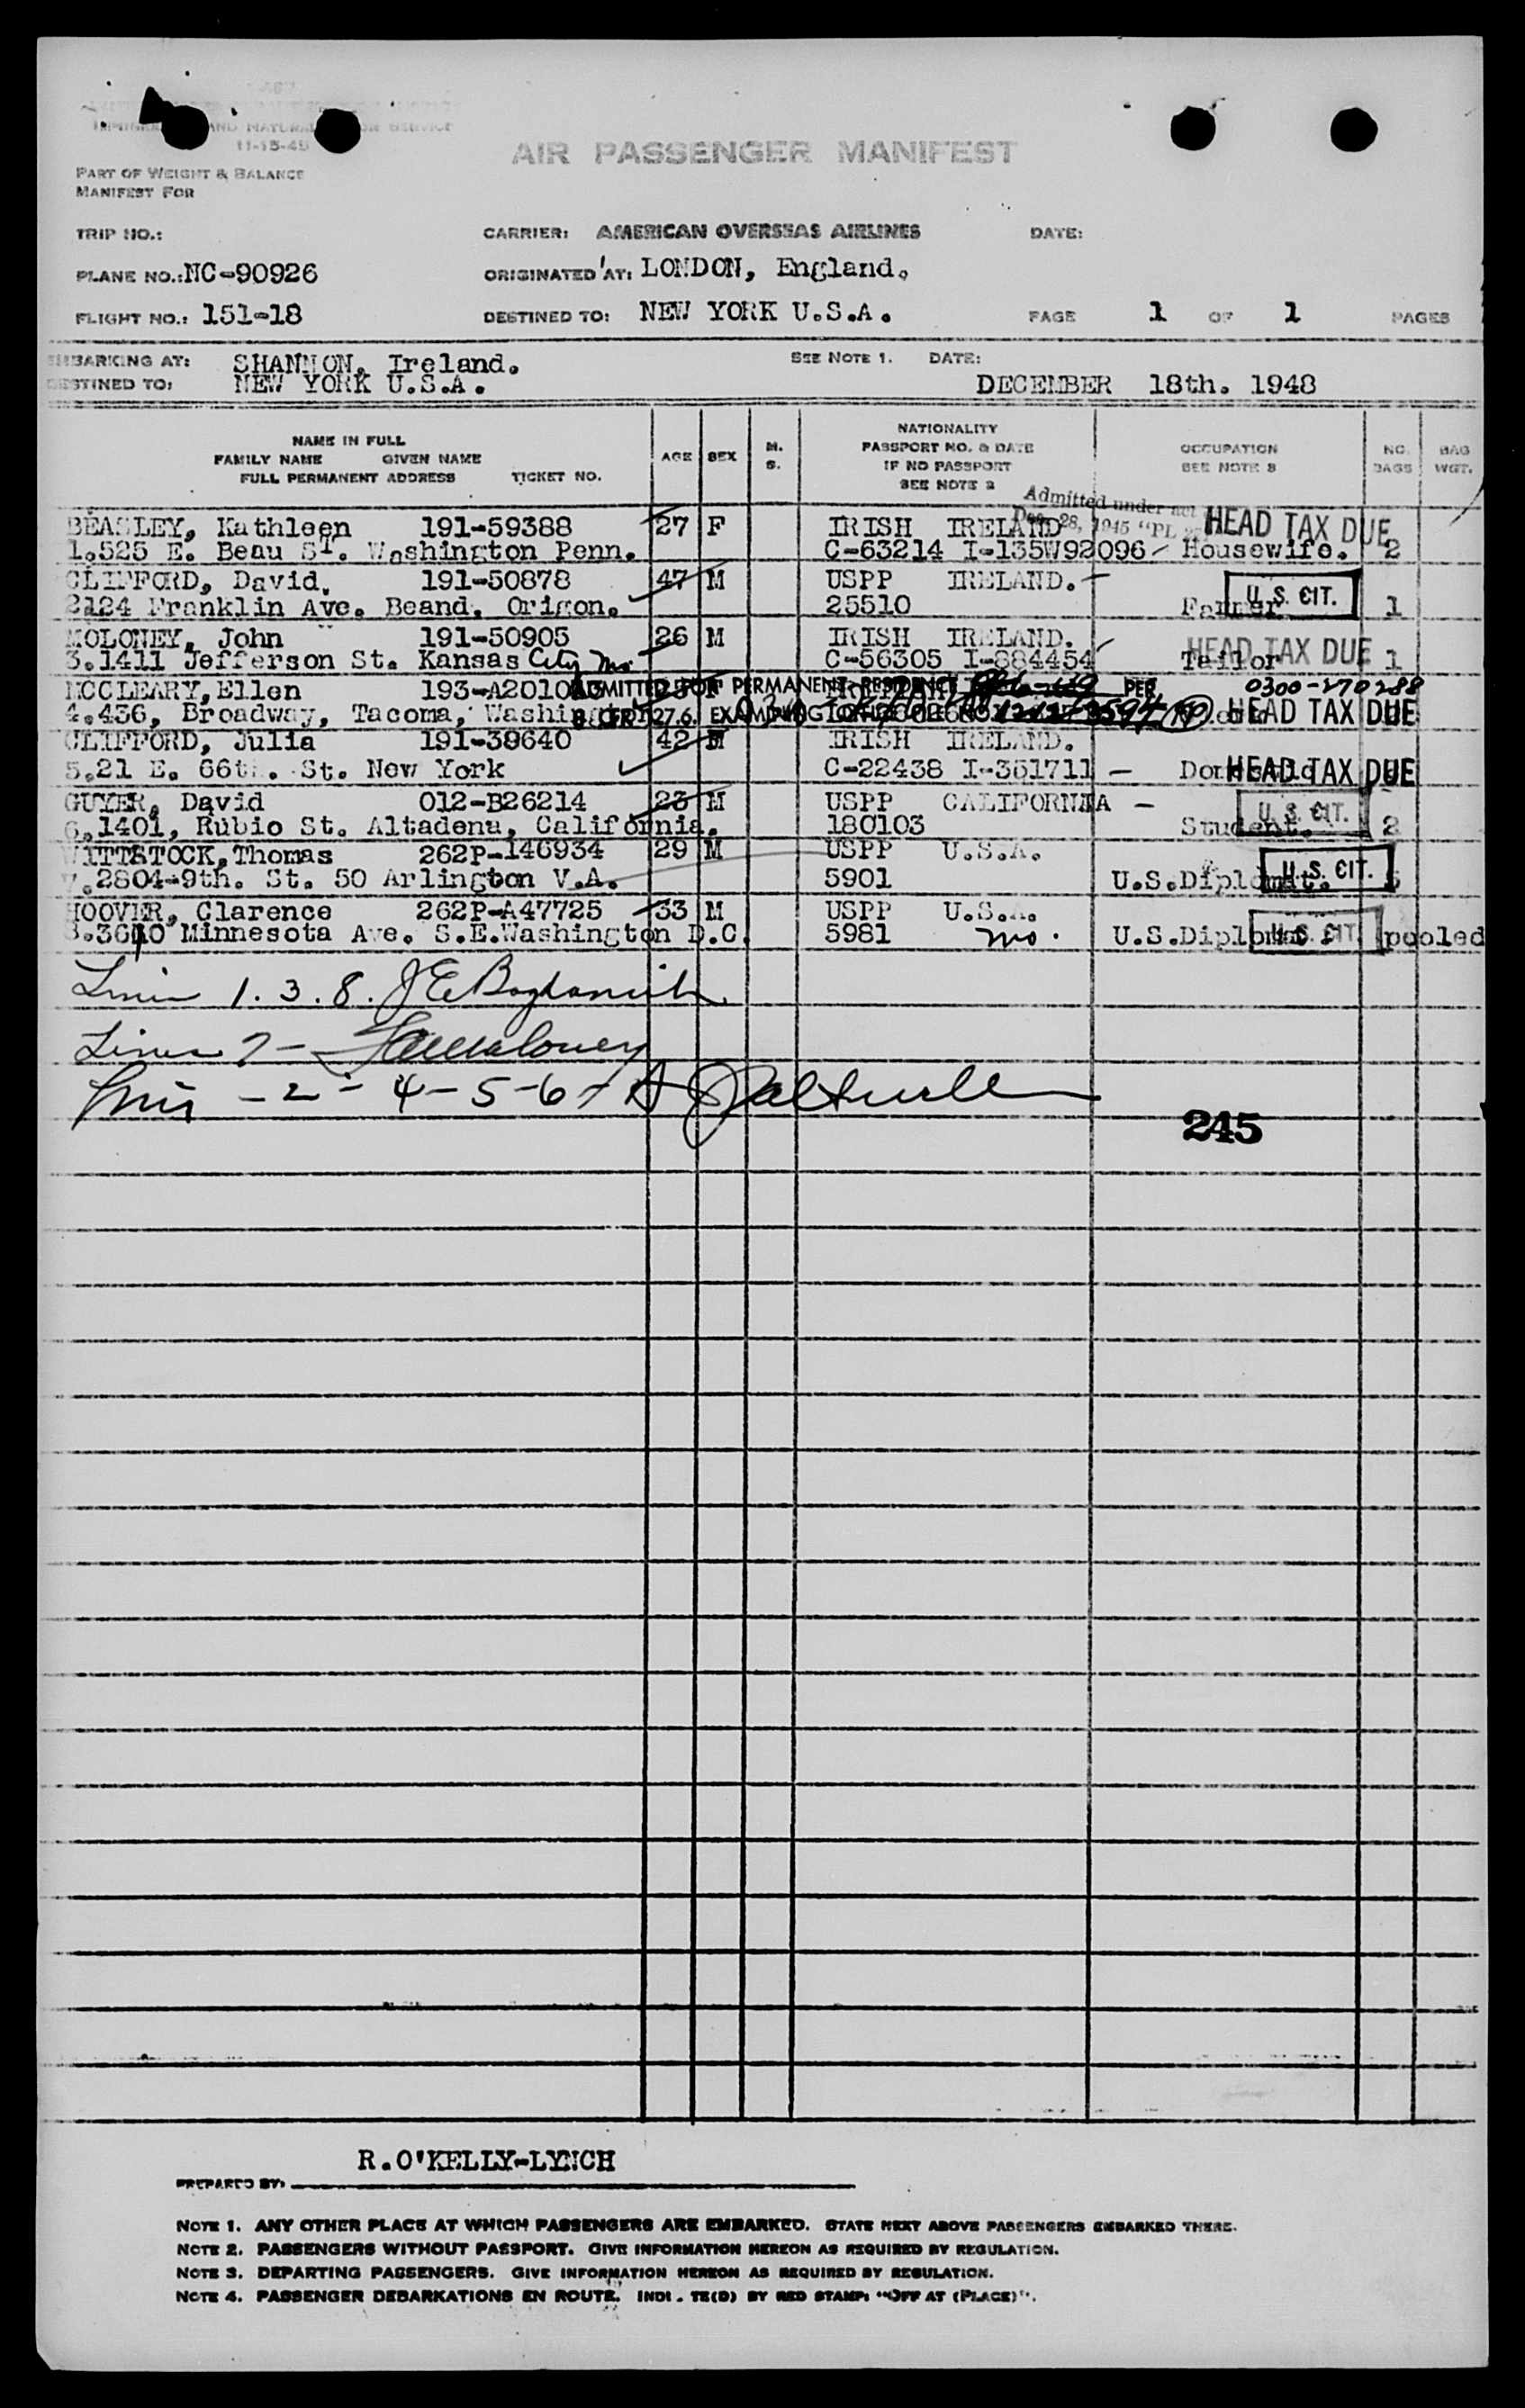 11-15-49
AIR PASSENGER MANIFEST
PART OF WEIGHT & BALANCE
MANIFEST FOR
TRIP NO.: CARRIER: AMERICAN OVERSEAS AIRLINES DATE:
PLANE NO.: NC-90926 ORIGINATED AT: LONDON, England.
FLIGHT NO.: 151-18 DESTINED TO: NEW YORK U.S.A. PAGE 1 OF 1 PAGES
EMBARKING AT: SHANNON, Ireland. SEE NOTE 1. DATE:
DESTINED TO: NEW YORK U.S.A. DECEMBER 18th. 1948
NAME IN FULL
FAMILY NAME GIVEN NAME
FULL PERMANENT ADDRESS TICKET NO.
AGE SEX M. S.
NATIONALITY
PASSPORT NO. & DATE
IF NO PASSPORT
SEE NOTE 2
OCCUPATION
SEE NOTE 3
NO. BAGS
BAG WGT.
Admitted under act
Dec. 28, 1945 "PL
BEASLEY, Kathleen 191-59388 27 F IRISH IRELAND HEAD TAX DUE
1.525 E. Beau ST. Washington Penn. C-63214 I-135W92096 Housewife. 2
CLIFFORD, David. 191-50878 47 M USPP IRELAND. U.S. CIT.
2124 Franklin Ave. Beand. Origon. 25510 Farmer 1
MOLONEY, John 191-50905 26 M IRISH IRELAND. HEAD TAX DUE
3.1411 Jefferson St. Kansas City Mo. C-56305 I-884454 Tailor 1
MCCLEARY, Ellen ADMITTED FOR PERMANENT RESIDENCE PER 0300-270288
4.436, Broadway, Tacoma, Washington 8 CFR 127.6. HEAD TAX DUE
CLIFFORD, Julia 191-38640 42 IRISH IRELAND.
5.21 E. 66th. St. New York C-22438 I-351711 HEAD TAX DUE
GUYER, David 012-B26214 23 M USPP CALIFORNIA U.S. CIT.
6.1401, Rubio St. Altadena, California. 180103 Student. 2
WITTSTOCK, Thomas 262P-146934 29 M USPP U.S.A. U.S. CIT.
7.2804-9th. St. 50 Arlington V.A. 5901 U.S.Diplomat.
HOOVER, Clarence 262P-A47725 33 M USPP U.S.A.
8.3610 Minnesota Ave. S.E.Washington D.C. 5981 Mo. U.S.Diplomat U.S. CIT pooled
Lines 1. 3. 8.
Lines 7 -
Lines - 2 - 4 - 5 - 6 -
245
R.O'KELLY-LYNCH
PREPARED BY:
NOTE 1. ANY OTHER PLACE AT WHICH PASSENGERS ARE EMBARKED. STATE NEXT ABOVE PASSENGERS EMBARKED THERE.
NOTE 2. PASSENGERS WITHOUT PASSPORT. GIVE INFORMATION HEREON AS REQUIRED BY REGULATION.
NOTE 3. DEPARTING PASSENGERS. GIVE INFORMATION HEREON AS REQUIRED BY REGULATION.
NOTE 4. PASSENGER DEBARKATIONS EN ROUTE. INDI . TE(D) BY RED STAMP: "OFF AT (PLACE)".